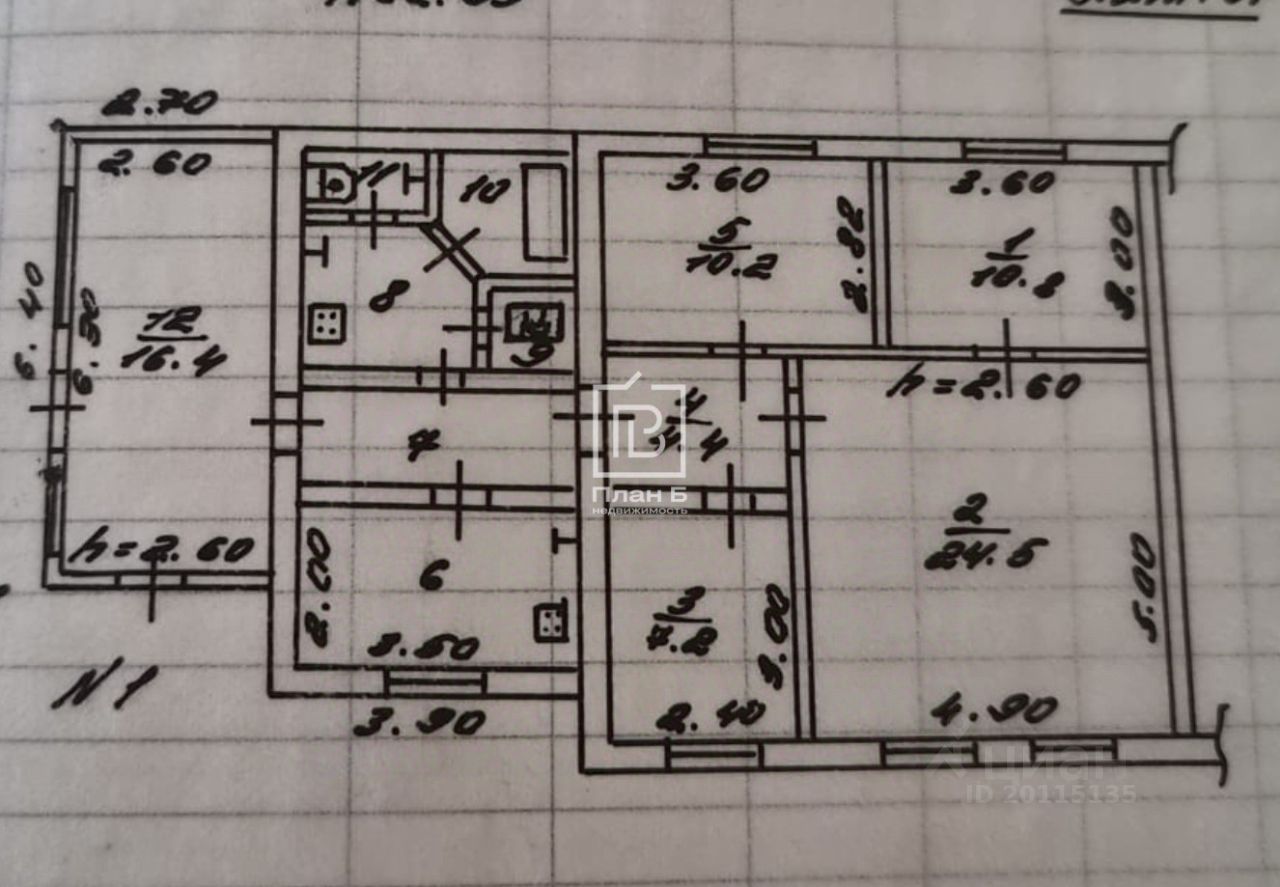 2.70
2.60
11
10
3.60
3.60
5
10.2
2.82
1
10.8
3.00
6.40
6.30
12
16.4
8
9
h=2.60
4
4.4
7
План Б
недвижимость
h=2.60
2.00
6
3.50
3
7.2
3.00
2
24.5
5.00
N1
3.90
2.40
4.90
циан
ID 20115135